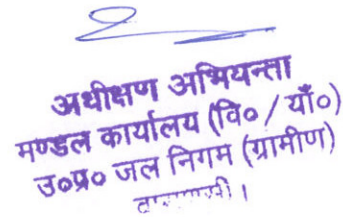 अधीक्षण अभियन्ता
मण्डल कार्यालय (वि० / याँ०)
उ०प्र० जल निगम (ग्रामीण)
वाराणसी ।